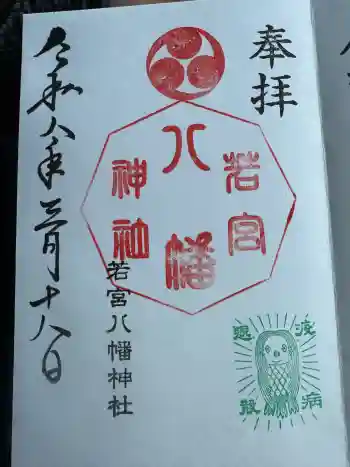 奉拝
若宮
八幡
神社
若宮八幡神社
令和八年三月十八日
疫病
退散